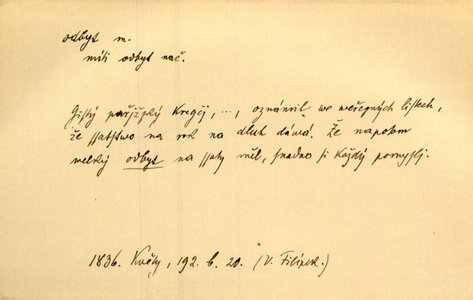 odbyt m.
míti odbyt nač.
Gistý pařížský Kregčj, ..., oznámil we weřegných listech,
že ssatstwo na rok na dluh dává. Že napotom
velký odbyt na ssaty měl, snadno si každý pomyslj.
1836. Květy, 192. b. 20. (V. Filípek.)